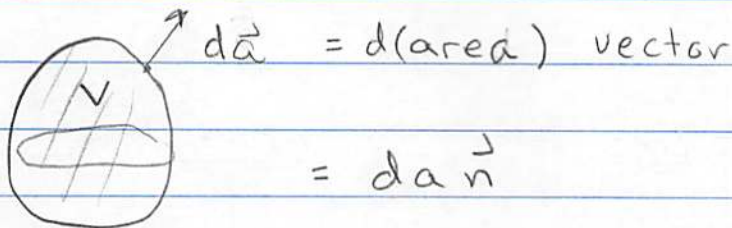 da⃗ = d(area) vector
V
= da n⃗